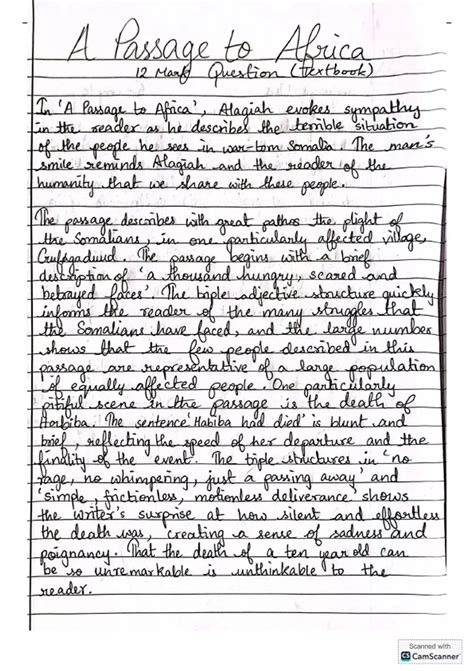 A Passage to Africa
12 Mark Question (Textbook)
In 'A Passage to Africa', Alagiah evokes sympathy
in the reader as he describes the terrible situation
of the people he sees in war-torn Somalia. The man's
smile reminds Alagiah and the reader of the
humanity that we share with these people.
The passage describes with great pathos the plight of
the Somalians, in one particularly affected village,
Gufgaduud. The passage begins with a brief
description of 'a thousand hungry, scared and
betrayed faces'. The triple adjective structure quickly
informs the reader of the many struggles that
the Somalians have faced, and the large number
shows that the few people described in this
passage are representative of a large population
of equally affected people. One particularly
pitiful scene in the passage is the death of
Habiba. The sentence 'Habiba had died' is blunt and
brief, reflecting the speed of her departure and the
finality of the event. The triple structures in 'no
rage, no whimpering, just a passing away' and
'simple, frictionless, motionless deliverance' shows
the writer's surprise at how silent and effortless
the death was, creating a sense of sadness and
poignancy. That the death of a ten year old can
be so unremarkable is unthinkable to the
reader.
Scanned with
CS CamScanner